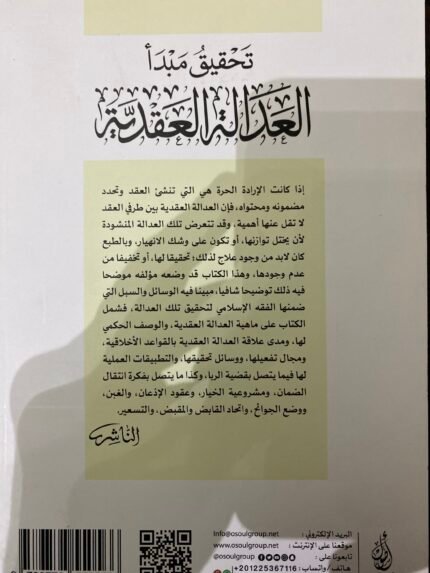 تَحْقِيقُ مَبْدَأ
العَدَالَةِ العَقْدِيَّةِ
إذا كانت الإرادة الحرة هي التي تنشئ العقد وتحدد
مضمونه ومحتواه، فإن العدالة العقدية بين طرفي العقد
لا تقل عنها أهمية، وقد تتعرض تلك العدالة المنشودة
لأن يختل توازنها، أو تكون على وشك الانهيار، وبالطبع
كان لابد من وجود علاج لذلك؛ تحقيقا لها، أو تخفيفا من
عدم وجودها، وهذا الكتاب قد وضعه مؤلفه موضحا
فيه ذلك توضيحا شافيا، مبينا فيه الوسائل والسبل التي
ضمنها الفقه الإسلامي لتحقيق تلك العدالة، فشمل
الكتاب على ماهية العدالة العقدية، والوصف الحكمي
لها، ومدى علاقة العدالة العقدية بالقواعد الأخلاقية،
ومجال تفعيلها، ووسائل تحقيقها، والتطبيقات العملية
لها فيما يتصل بقضية الربا، وكذا ما يتصل بفكرة انتقال
الضمان، ومشروعية الخيار، وعقود الإذعان، والغبن،
ووضع الجوائح، واتحاد القابض والمقبض، والتسعير.
الناشر
البريد الإلكتروني: Info@osoulgroup.net
موقعنا على الإنترنت: www.osoulgroup.net
تابعونا على
هاتف / واتساب: 201225367116+